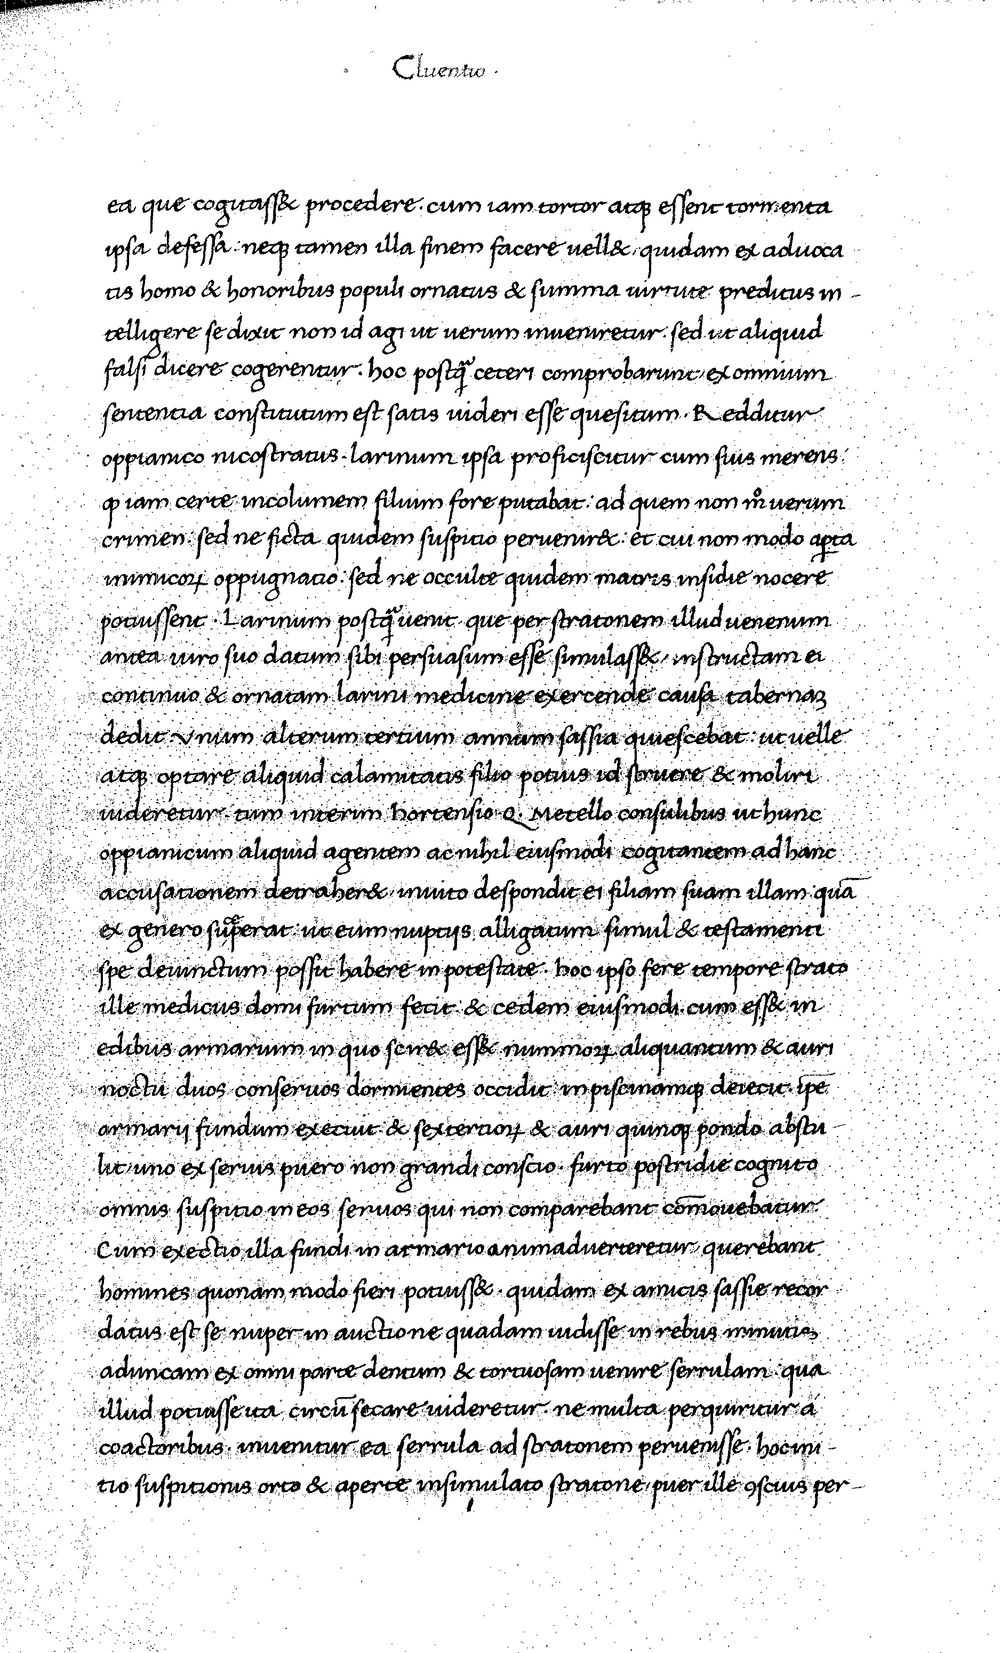 Cluentio ·
ea que cogitass& procedere · cum iam tortor atqꝫ essent tormenta
ipsa defessa : neqꝫ tamen illa finem facere uell& · quidam ex aduoca
tis homo & honoribus populi ornatus & summa uirtute preditus in -
telligere se dixit non id agi ut uerum inueniretur · sed ut aliquid
falsi dicere cogerentur · hoc postq̃ ceteri comprobarunt · ex omnium
sententia constitutum est satis uideri esse quesitum · Redditur
oppianico nicostratus · larinum ipsa proficiscitur cum suis merens :
ꝙ iam certe incolumem filium fore putabat : ad quem non m̊ uerum
crimen · sed ne ficta quidem suspitio perueniret : et cui non modo aꝑta
inimicoꝝ oppugnatio : sed ne occulte quidem matris insidie nocere
potuissent · Larinum postq̃ uenit · que per stratonem illud uenenum
antea uiro suo datum sibi persuasum esse simulass& · instructam ei
continuo & ornatam larini medicine exercende causa tabernaꝫ
dedit Vnum alterum tertium annum sassia quiescebat : ut uelle
atqꝫ optare aliquid calamitatis filio potius id struere & moliri
uideretur · tum interim hortensio Q. Metello consulibus ut hunc
oppianicum aliquid agentem ac nihil eiusmodi cogitantem ad hanc
accusationem detraher& · inuito despondit ei filiam suam illam quā
ex genero suꝑerat : ut eum nuptijs alligatum simul & testamenti
spe deuinctum possit habere in potestate · hoc ipso fere tempore strato
ille medicus domi furtum fecit · & cedem eiusmodi · cum ess& in
edibus armarium in quo scir& ess& nummoꝝ aliquantum & auri
noctu duos conseruos dormientes occidit · in piscinamqꝫ deiecit · ip̄e
armarij fundum execuit · & sextertioꝝ & auri quinqꝫ pondo abstu -
lit · uno ex seruis puero non grandi conscio · furto postridie cognito
omnis suspitio in eos seruos qui non comparebant com̄ouebatur
Cum exectio illa fundi in armario animaduerteretur · querebant
homines quonam modo fieri potuiss& · quidam ex amicis sassie recor
datus est se nuper in auctione quadam uidisse in rebus minutis
aduncam ex omni parte dentum & tortuosam uenire serrulam · qua
illud potuisse ita circū secare uideretur · ne multa perquiritur a
coactoribus · inuenitur ea serrula ad stratonem peruenisse · hoc ini -
tio suspitionis orto & aperte insimulato stratone · puer ille ꝯscius per -